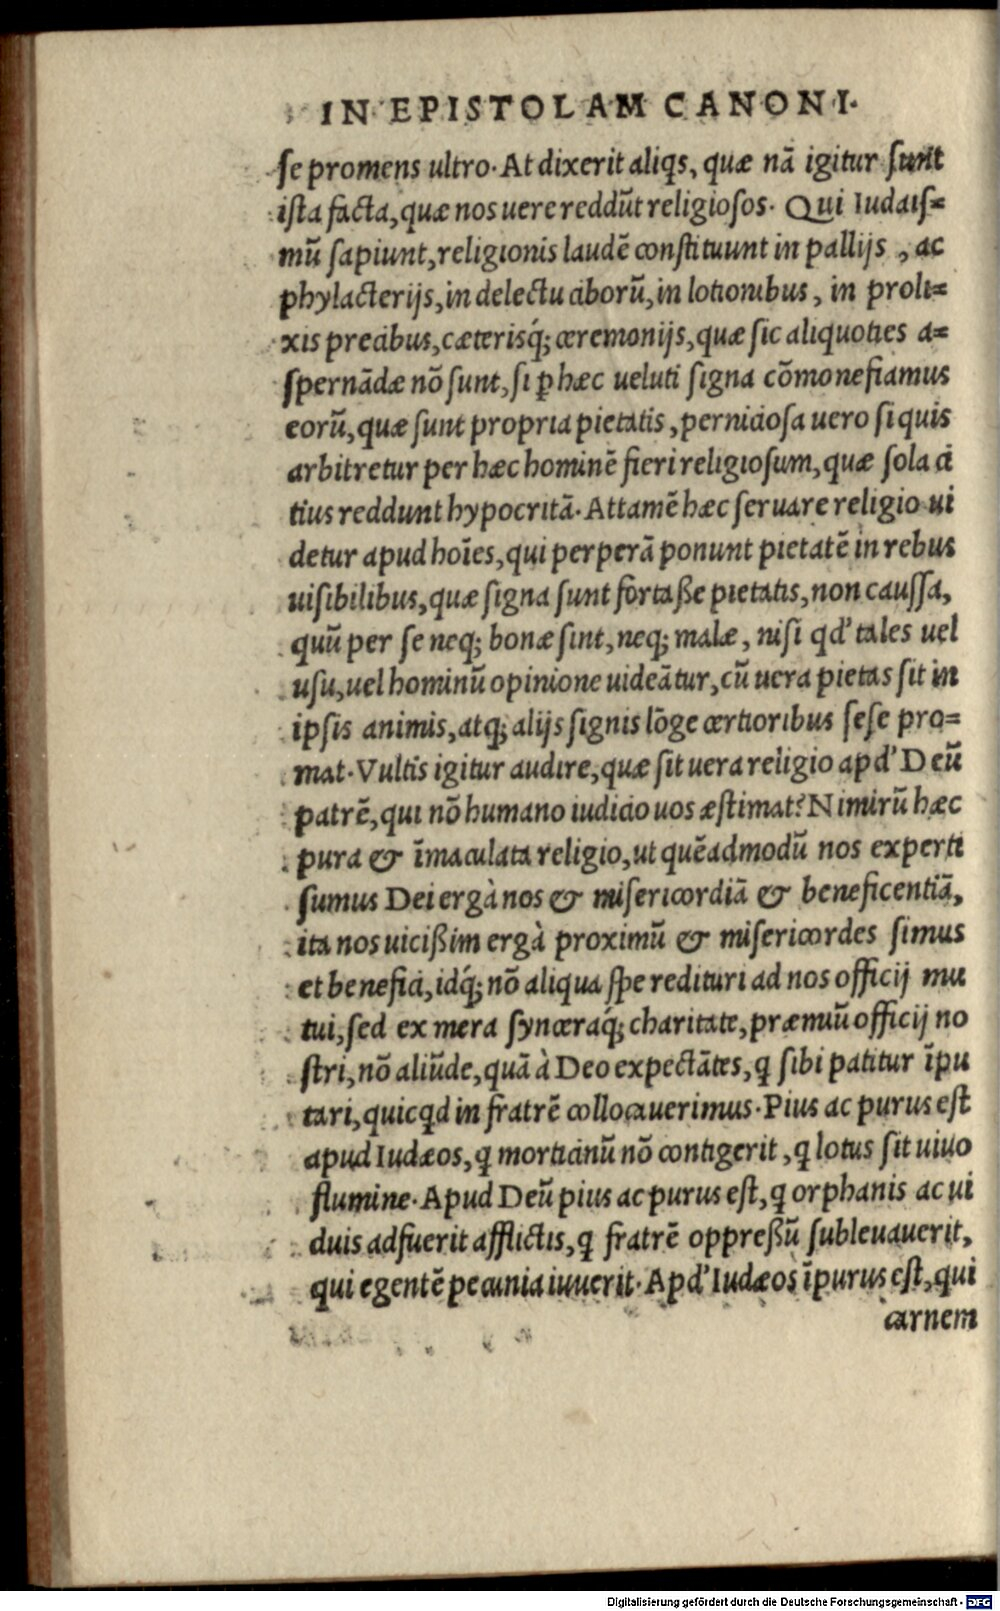 IN EPISTOLAM CANONI.
se promens ultro. At dixerit aliqs, quæ nā igitur sunt
ista facta, quæ nos uere reddūt religiosos. Qui Iudais=
mū sapiunt, religionis laudē constituunt in pallijs, ac
phylacterijs, in delectu ciborū, in lotionibus, in proli=
xis precibus, cæterisq́; cęremonijs, quæ sic aliquoties a=
spernādæ nō sunt, si ꝑ hæc ueluti signa cōmonefiamus
eorū, quæ sunt propria pietatis, perniciosa uero si quis
arbitretur per hæc hominē fieri religiosum, quæ sola ci
tius reddunt hypocritā. Attamē hæc seruare religio ui
detur apud hoīes, qui perperā ponunt pietatē in rebus
uisibilibus, quæ signa sunt fortaße pietatis, non caussa,
quū per se neq; bonæ sint, neq; malæ, nisi qd' tales uel
usu, uel hominū opinione uideātur, cū uera pietas sit in
ipsis animis, atq; alijs signis lōge certioribus sese pro=
mat. Vultis igitur audire, quæ sit uera religio apd' Deū
patrē, qui nō humano iudicio uos æstimat? Nimirū hæc
pura & īmaculata religio, ut quēadmodū nos experti
sumus Dei ergà nos & misericordiā & beneficentiā,
ita nos uicißim ergà proximū & misericordes simus
et benefici, idq́; nō aliqua spe redituri ad nos officij mu
tui, sed ex mera synceraq́; charitate, præmiū officij no
stri, nō aliūde, quā à Deo expectātes, ꝗ sibi patitur īpu
tari, quicqd in fratrē collocauerimus. Pius ac purus est
apud Iudæos, ꝗ morticinū nō contigerit, ꝗ lotus sit uiuo
flumine. Apud Deū pius ac purus est, ꝗ orphanis ac ui
duis adfuerit afflictis, ꝗ fratrē oppreßū subleuauerit,
qui egentē pecunia iuuerit. Apd' Iudæos īpurus est, qui
carnem
Digitalisierung gefördert durch die Deutsche Forschungsgemeinschaft - DFG